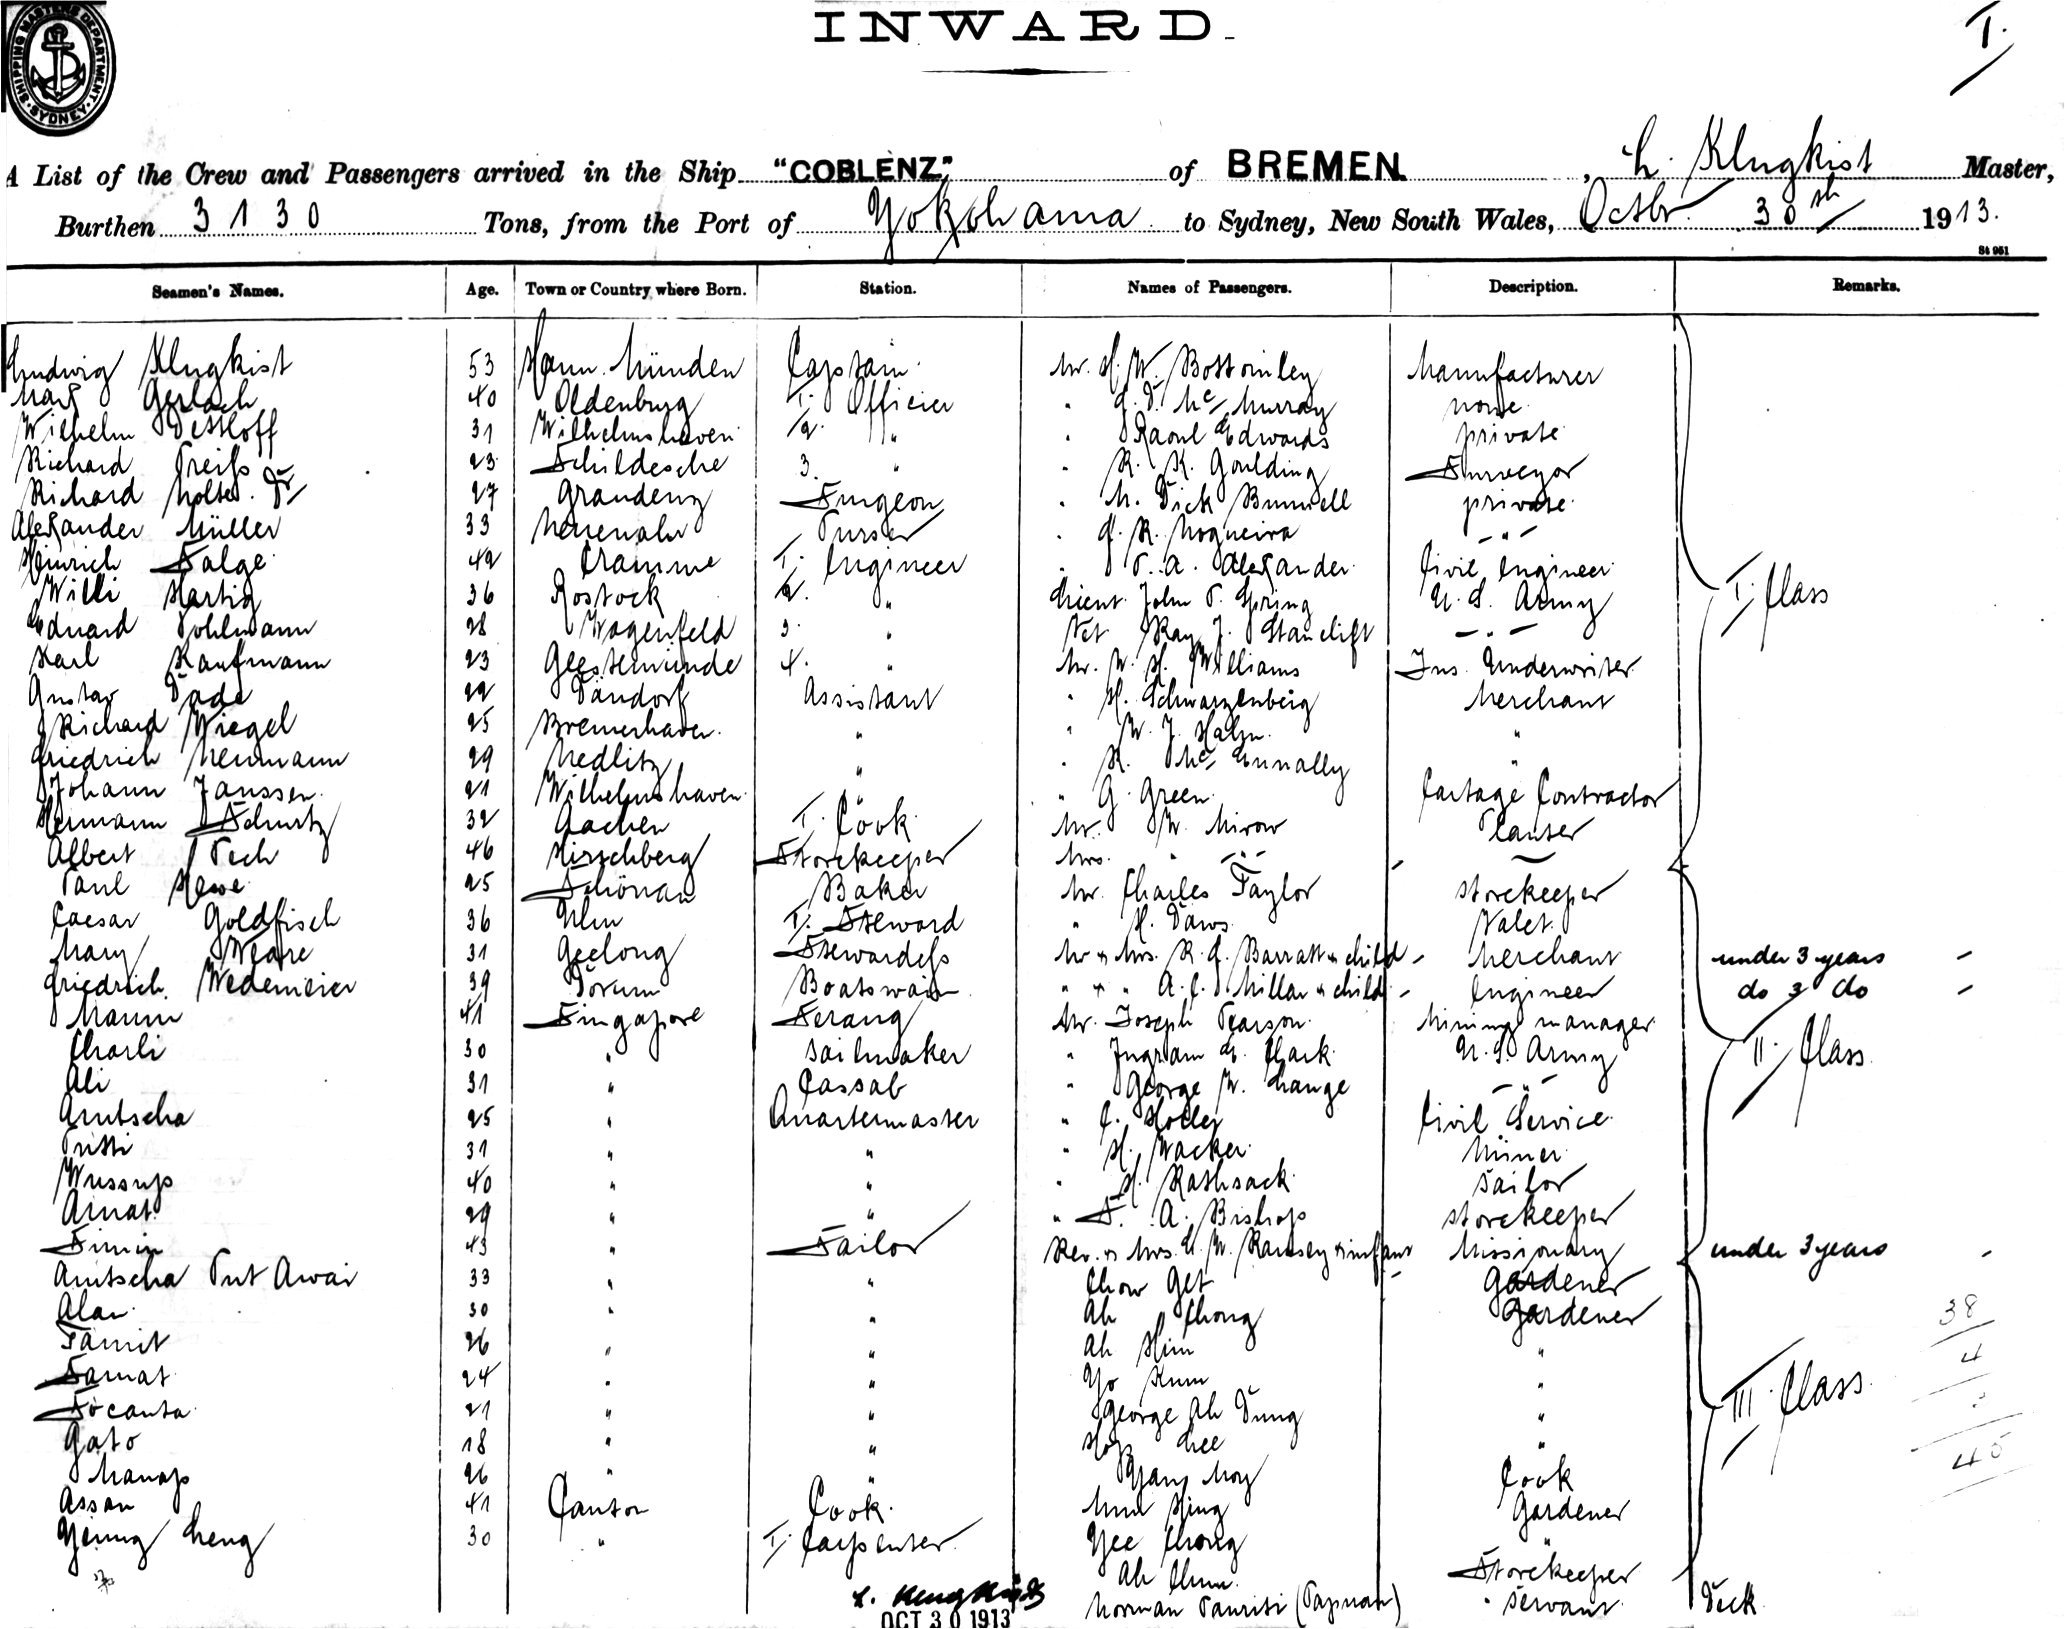 SHIPPING MASTERS DEPARTMENT · SYDNEY
INWARD
I.
A List of the Crew and Passengers arrived in the Ship "COBLENZ" of BREMEN, L. Klugkist Master,
Burthen 3130 Tons, from the Port of Yokohama to Sydney, New South Wales, Octbr. 30th 1913.
St 951
Seamen's Names. Age. Town or Country where Born. Station. Names of Passengers. Description. Remarks.
Ludwig Klugkist 53 Hann. Münden Captain Mr. H. W. Bottomley Manufacturer
Max Gerlach 40 Oldenburg I. Officier " Mc Murray none
Wilhelm Dettloff 31 Wilhelmshaven 2. " " Raoul Edwards private
Richard Preiss 23 Schildesche 3. " " R. K. Goulding Surveyor
Richard Moltes. Dr 27 Graudenz Surgeon " M. Dick Bunnell private
Alexander Müller 33 Neuenahr Purser " C. R. Nogueira "
Heinrich Salge 42 Cramme I. Engineer " P. A. Alexander Civil Engineer
Willi Hartig 36 Rostock 2. " Lieut. John P. Spring U. S. Army I. Class
Eduard Pohlmann 28 Wagenfeld 3. " Vet Ray J. Stanclift "
Karl Kaufmann 23 Geestemünde 4. " Mr. W. H. Williams Ins. Underwriter
Gustav Dade 22 Dändorf Assistant " H. Schwarzenberg Merchant
Richard Wiegel 25 Bremerhaven " " W. J. Hahn "
Friedrich Neumann 29 Nedlitz " " R. Mc Ennally "
Johann Janssen 21 Wilhelmshaven " " G. Green Cartage Contractor
Hermann Schurtz 32 Aachen I. Cook Mr. W. Mirow Planter
Albert Pech 46 Hirschberg Storekeeper Mrs. " "
Paul Hesse 25 Schönau Baker Mr. Charles Taylor storekeeper
Caesar Goldfisch 36 Ulm I. Steward " H. Daws Valet
Mary Weare 31 Geelong Stewardess Mr & Mrs. R. J. Barratt & child - Merchant under 3 years -
Friedrich Wedemeier 39 Dorum Boatswain " & " A. C. Millar & child - Engineer do 3 do -
Manu 41 Singapore Serang Mr. Joseph Pearson Mining manager
Charli 30 " sailmaker " Ingram E. Clark U. S. Army II. Class
Ali 31 " Cassab " George W. Lange "
Amtscha 25 " Quartermaster " C. Holley Civil Service
Putti 31 " " " H. Wacker Miner
Wussup 40 " " " H. Rathsack sailor
Amat 29 " " " S. A. Bishop storekeeper
Simin 43 " Sailor Rev. & Mrs. W. Ramsey & infant Missionary under 3 years -
Amtscha Put Awai 33 " " Chow Get Gardener
Alan 30 " " Ah Chong Gardener 38
Tamit 26 " " Ah Him " 4
Samat 24 " " Yo Kum "
Socanta 21 " " George Ah Dung " III. Class
Gato 18 " " Hop Lee " 45
Manap 26 " " Yang Moy Cook
Assan 41 Canton Cook Mun Hing Gardener
Yeung Leng 30 " I. Carpenter Yee Chong "
Ah Chun Storekeeper
L. Klugkist Norman Pauriti (Papuan) servant Deck
OCT 30 1913